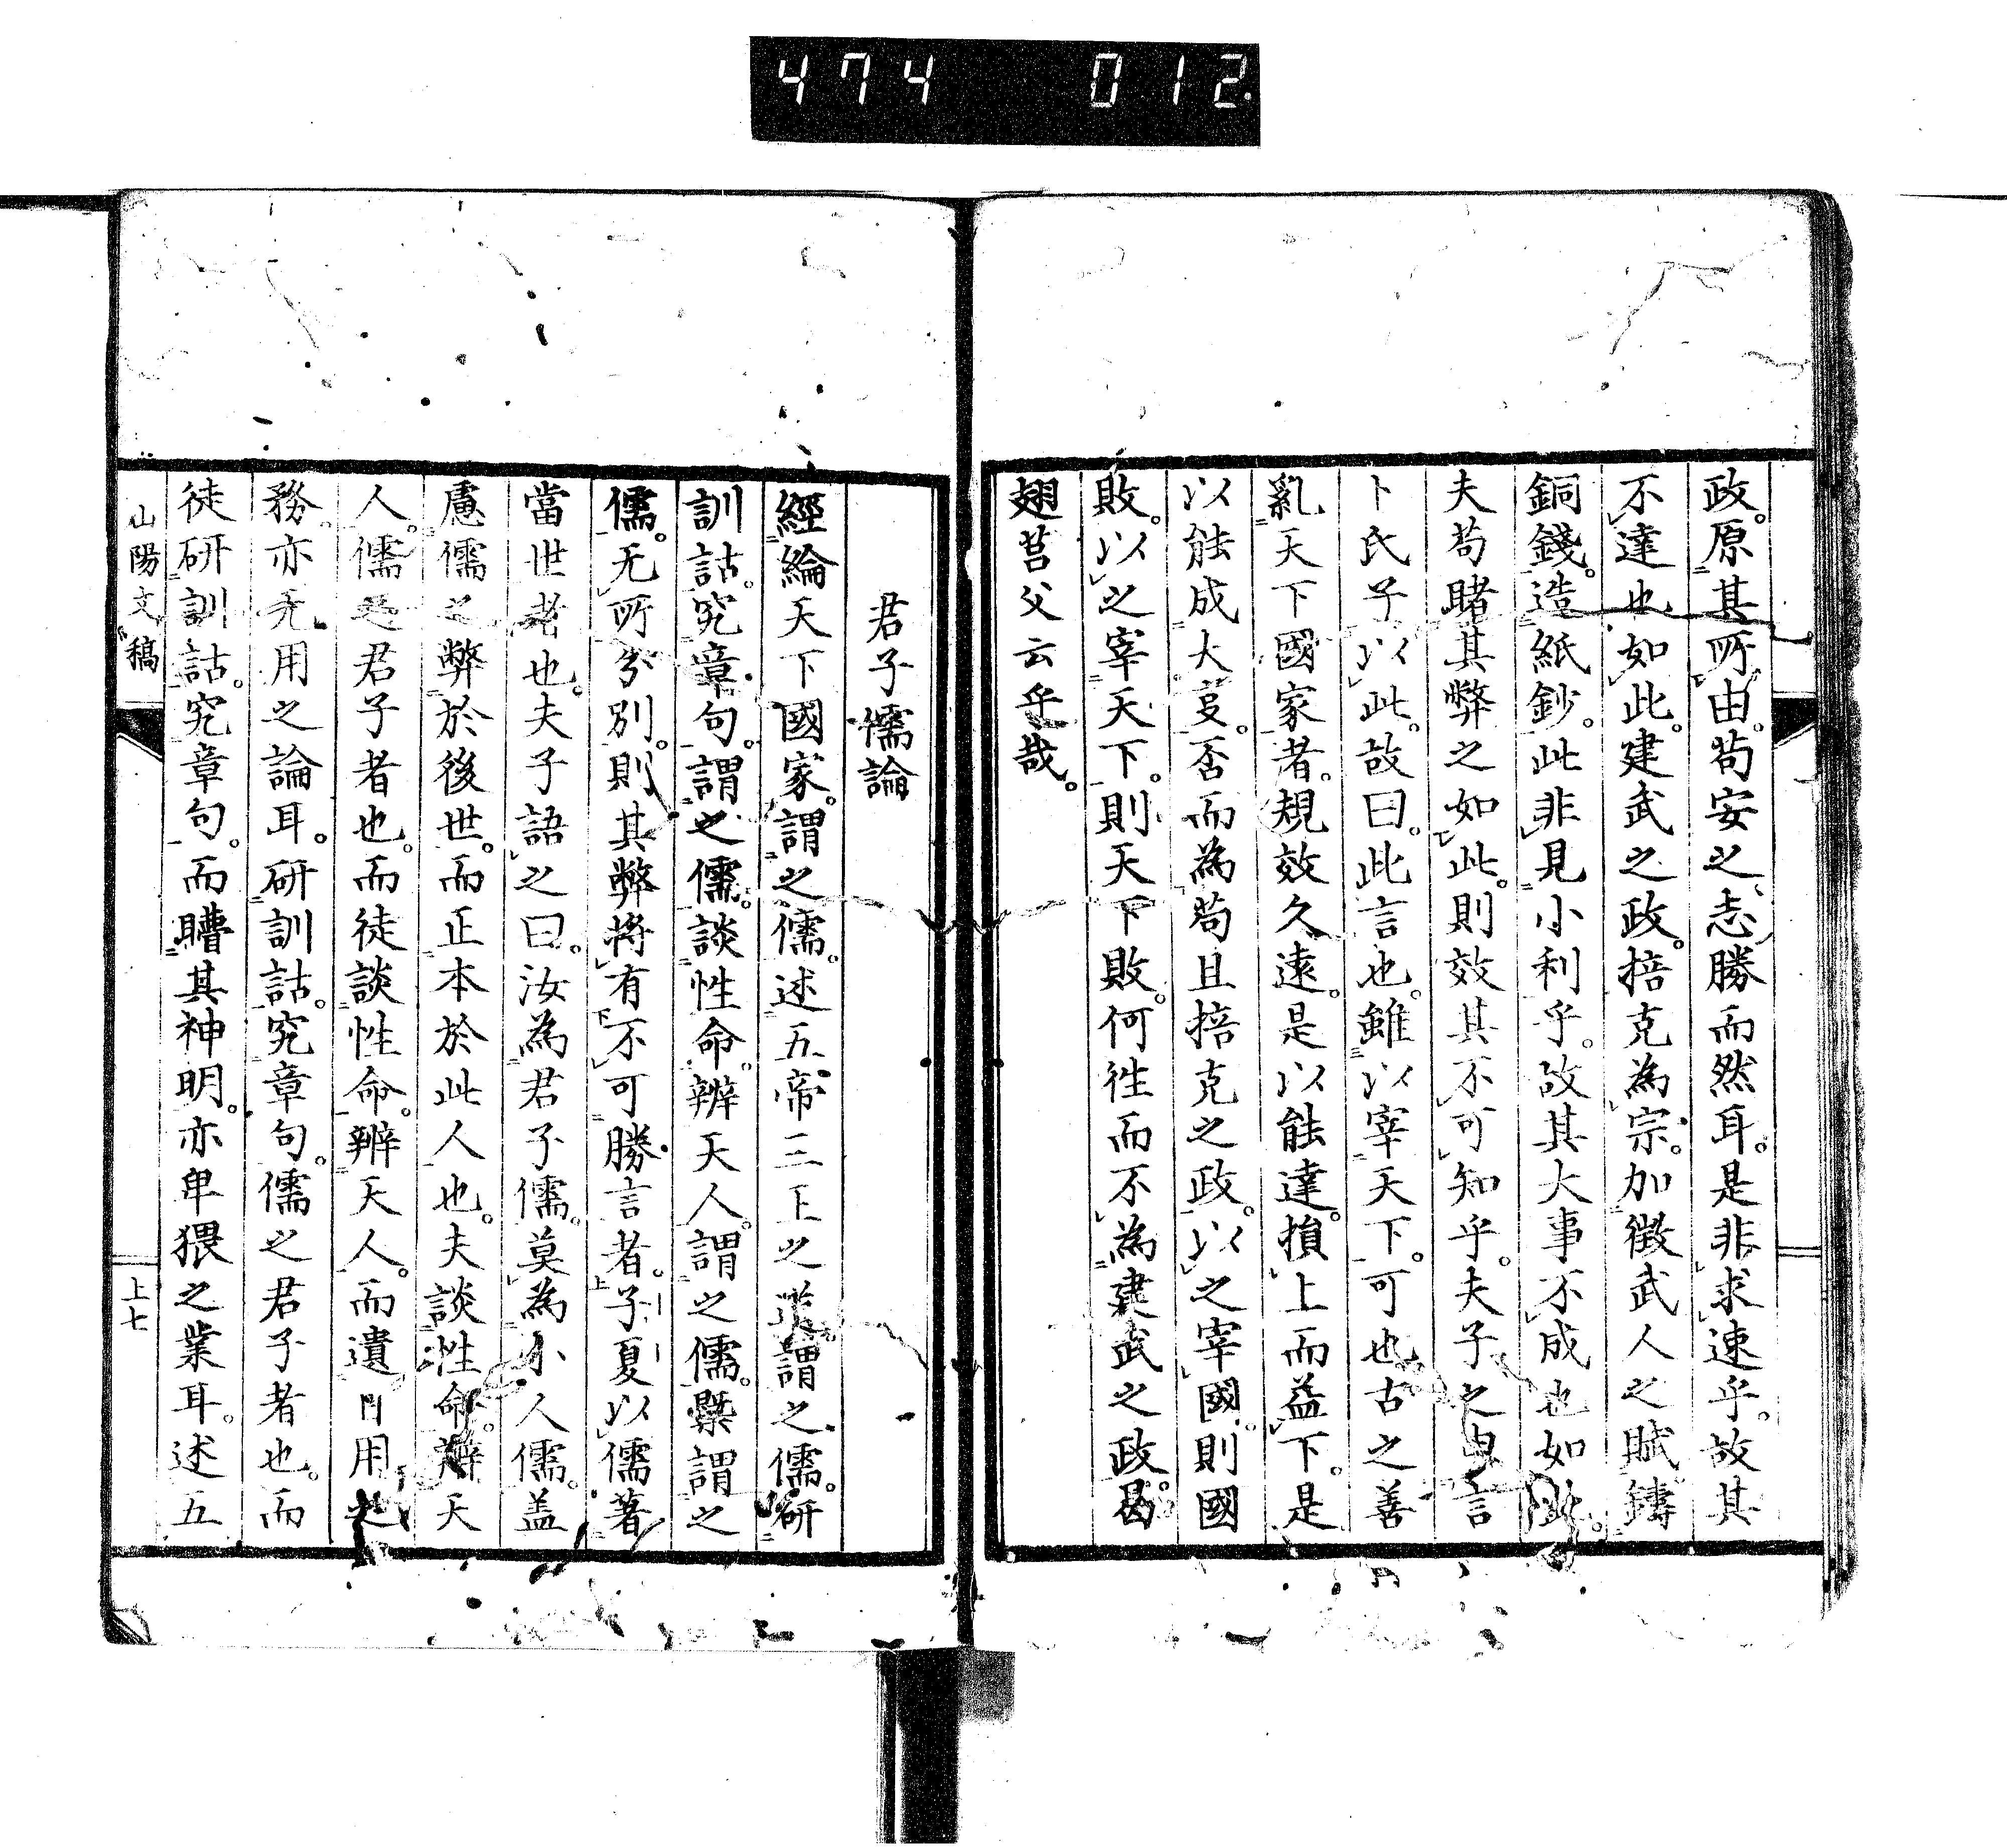 474 012
政。原其所由。苟安之志勝而然耳。是非求速乎。故其
不達也如此。建武之政。掊克為宗。加徵武人之賦鑄
銅錢。造紙鈔。此非見小利乎。故其大事不成也如此。
夫苟睹其弊之如此。則效其不可知乎。夫子之言
卜氏子以此。故曰。此言也。雖以宰天下。可也古之善
亂天下國家者。規效久遠。是以能達。損上而益下。是
以能成大。否而為苟且掊克之政。以之宰國。則國
敗。以之宰天下。則天下敗。何徃而不為建武之政。曷
翅莒父云乎哉。
君子儒論
經綸天下國家。謂之儒。述五帝三王之道。謂之儒。研
訓詁。究章句。謂之儒。談性命。辨天人。謂之儒。槩謂之
儒。无所分別。則其弊將有不可勝言者。子夏以儒著
當世者也。夫子語之曰。汝為君子儒。莫為小人儒。盖
慮儒之弊於後世。而正本於此人也。夫談性命。辨天
人。儒之君子者也。而徒談性命。辨天人。而遺日用之
務。亦无用之論耳。研訓詁。究章句。儒之君子者也。而
徒研訓詁。究章句。而矒其神明。亦卑猥之業耳。述五
山陽文稿
上七